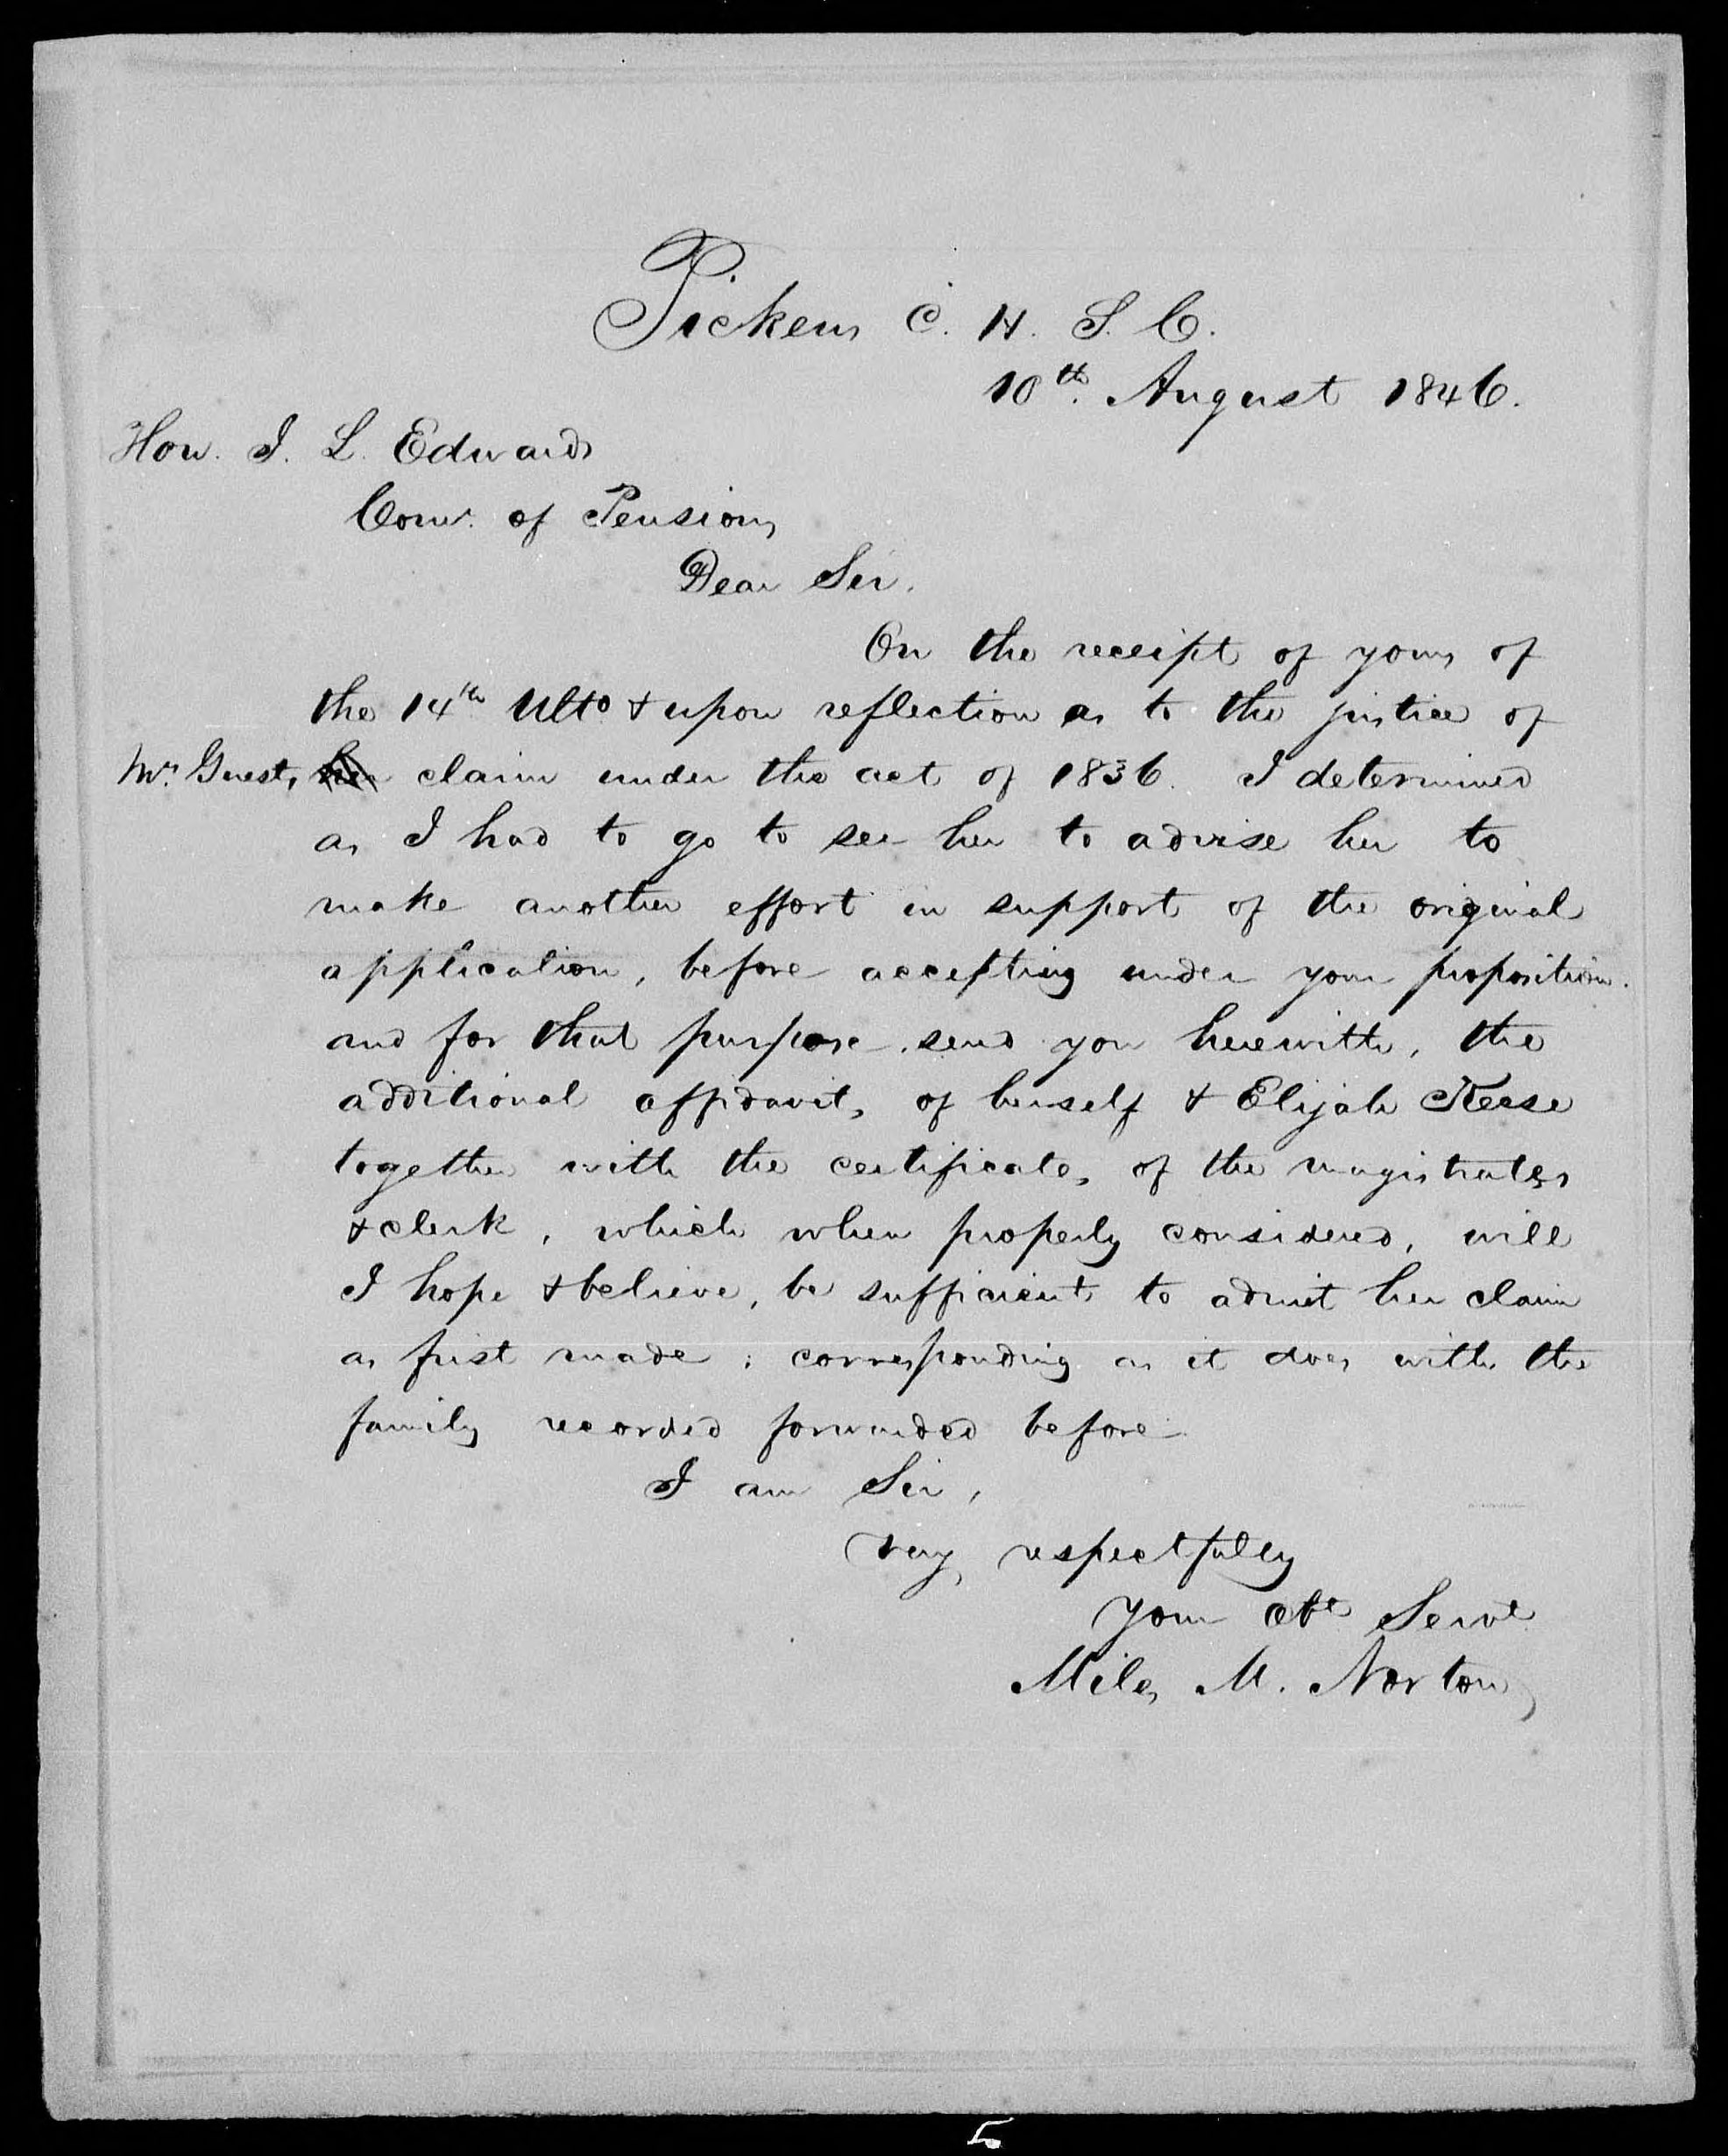 Pickens C. H. S. C.
10th. August 1846.
Hon. J. L. Edwards
Comr. of Pensions
Dear Sir.
On the receipt of yours of
the 14th Ulto & upon reflection as to the justice of
Mrs Guests her claim under the act of 1836. I determined
as I had to go to see her to advise her to
make another effort in support of the original
application, before accepting under your proposition.
and for that purpose send you herewith, the
additional affidavits of herself & Elijah Keese
together with the certificates of the magistrates
& clerk, which when properly considered, will
I hope & believe, be sufficient to admit her claim
as first made; corresponding as it does with the
family recorded forwarded before.
I am Sir,
very respectfully
your obt Servt
Miles M. Norton
5